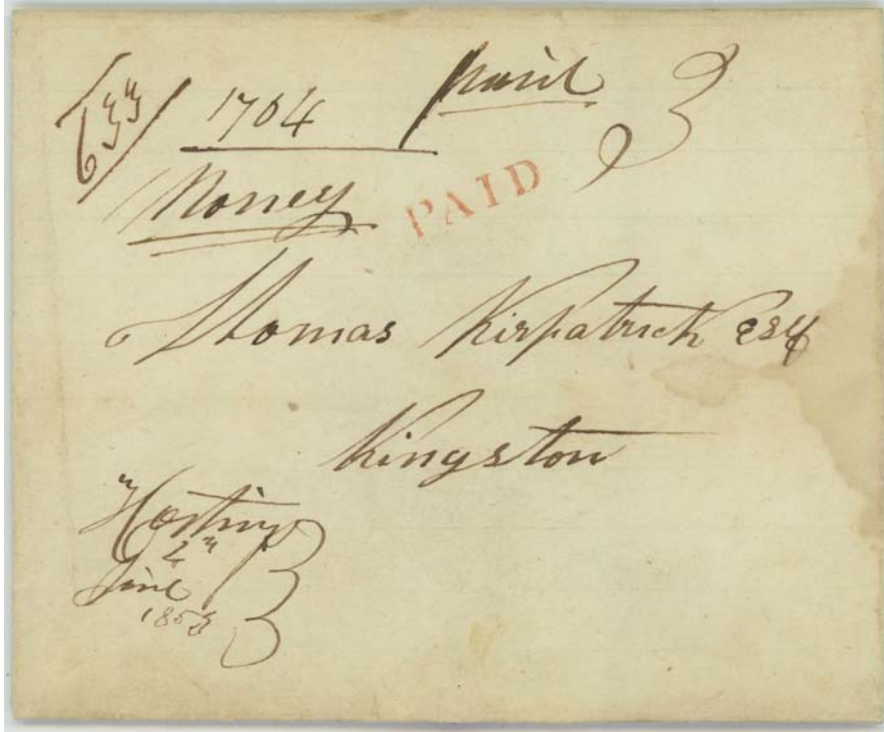 633/ 1704 Paid 3
Money
PAID
Thomas Kirpatrick Esq
Kingston
Hastings
2nd
June
1853